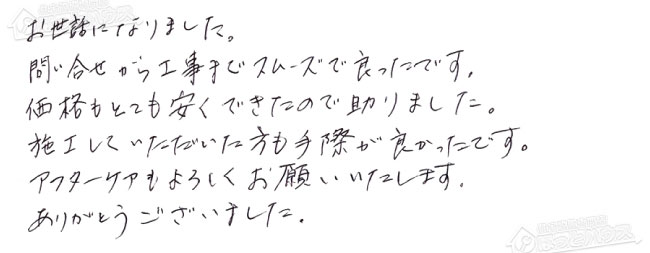 お世話になりました。
問い合せから工事までスムーズで良ったです。
価格もとても安くできたので助りました。
施工していただいた方も手際が良かったです。
アフターケアもよろしくお願いいたします。
ありがとうございました.